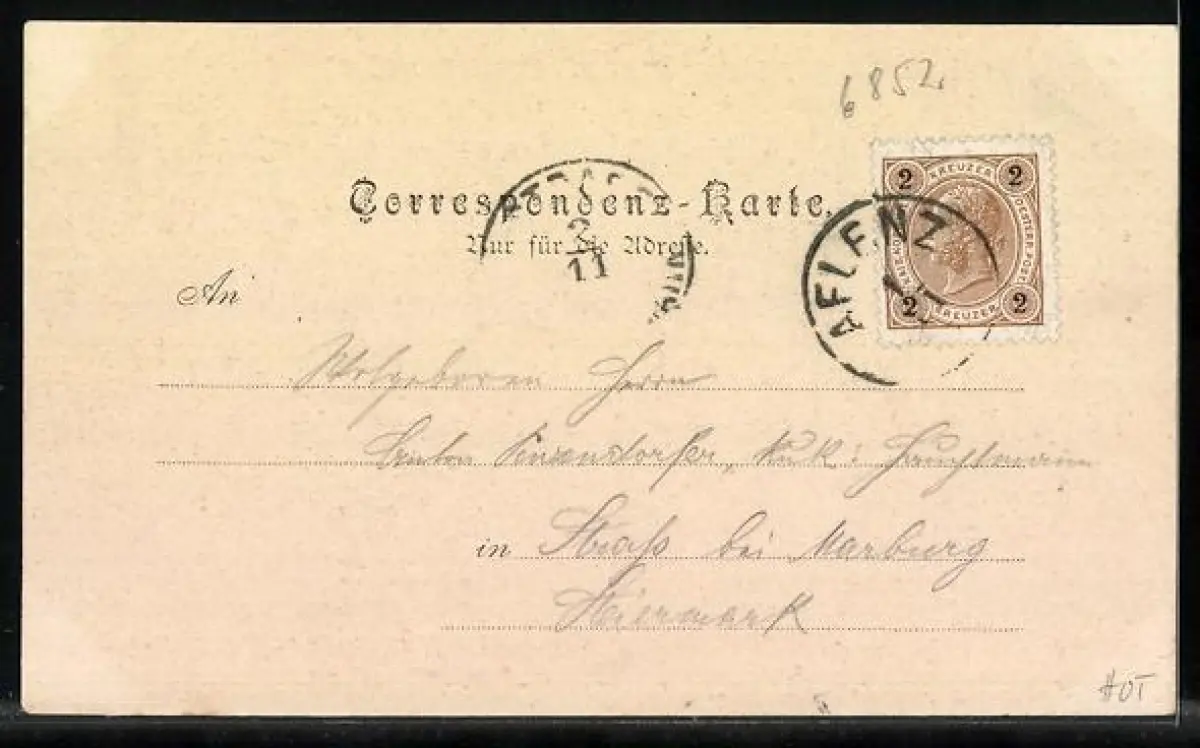 6852
2 KREUZER 2
OESTERR. POST
2 KREUZER 2
Correspondenz-Karte.
Nur für die Adresse.
2
11
AFLENZ
An
Wolgeboren Herrn
Anton K. u. K. Hauptmann
in Straß bei Marburg
Steiermark
HOT